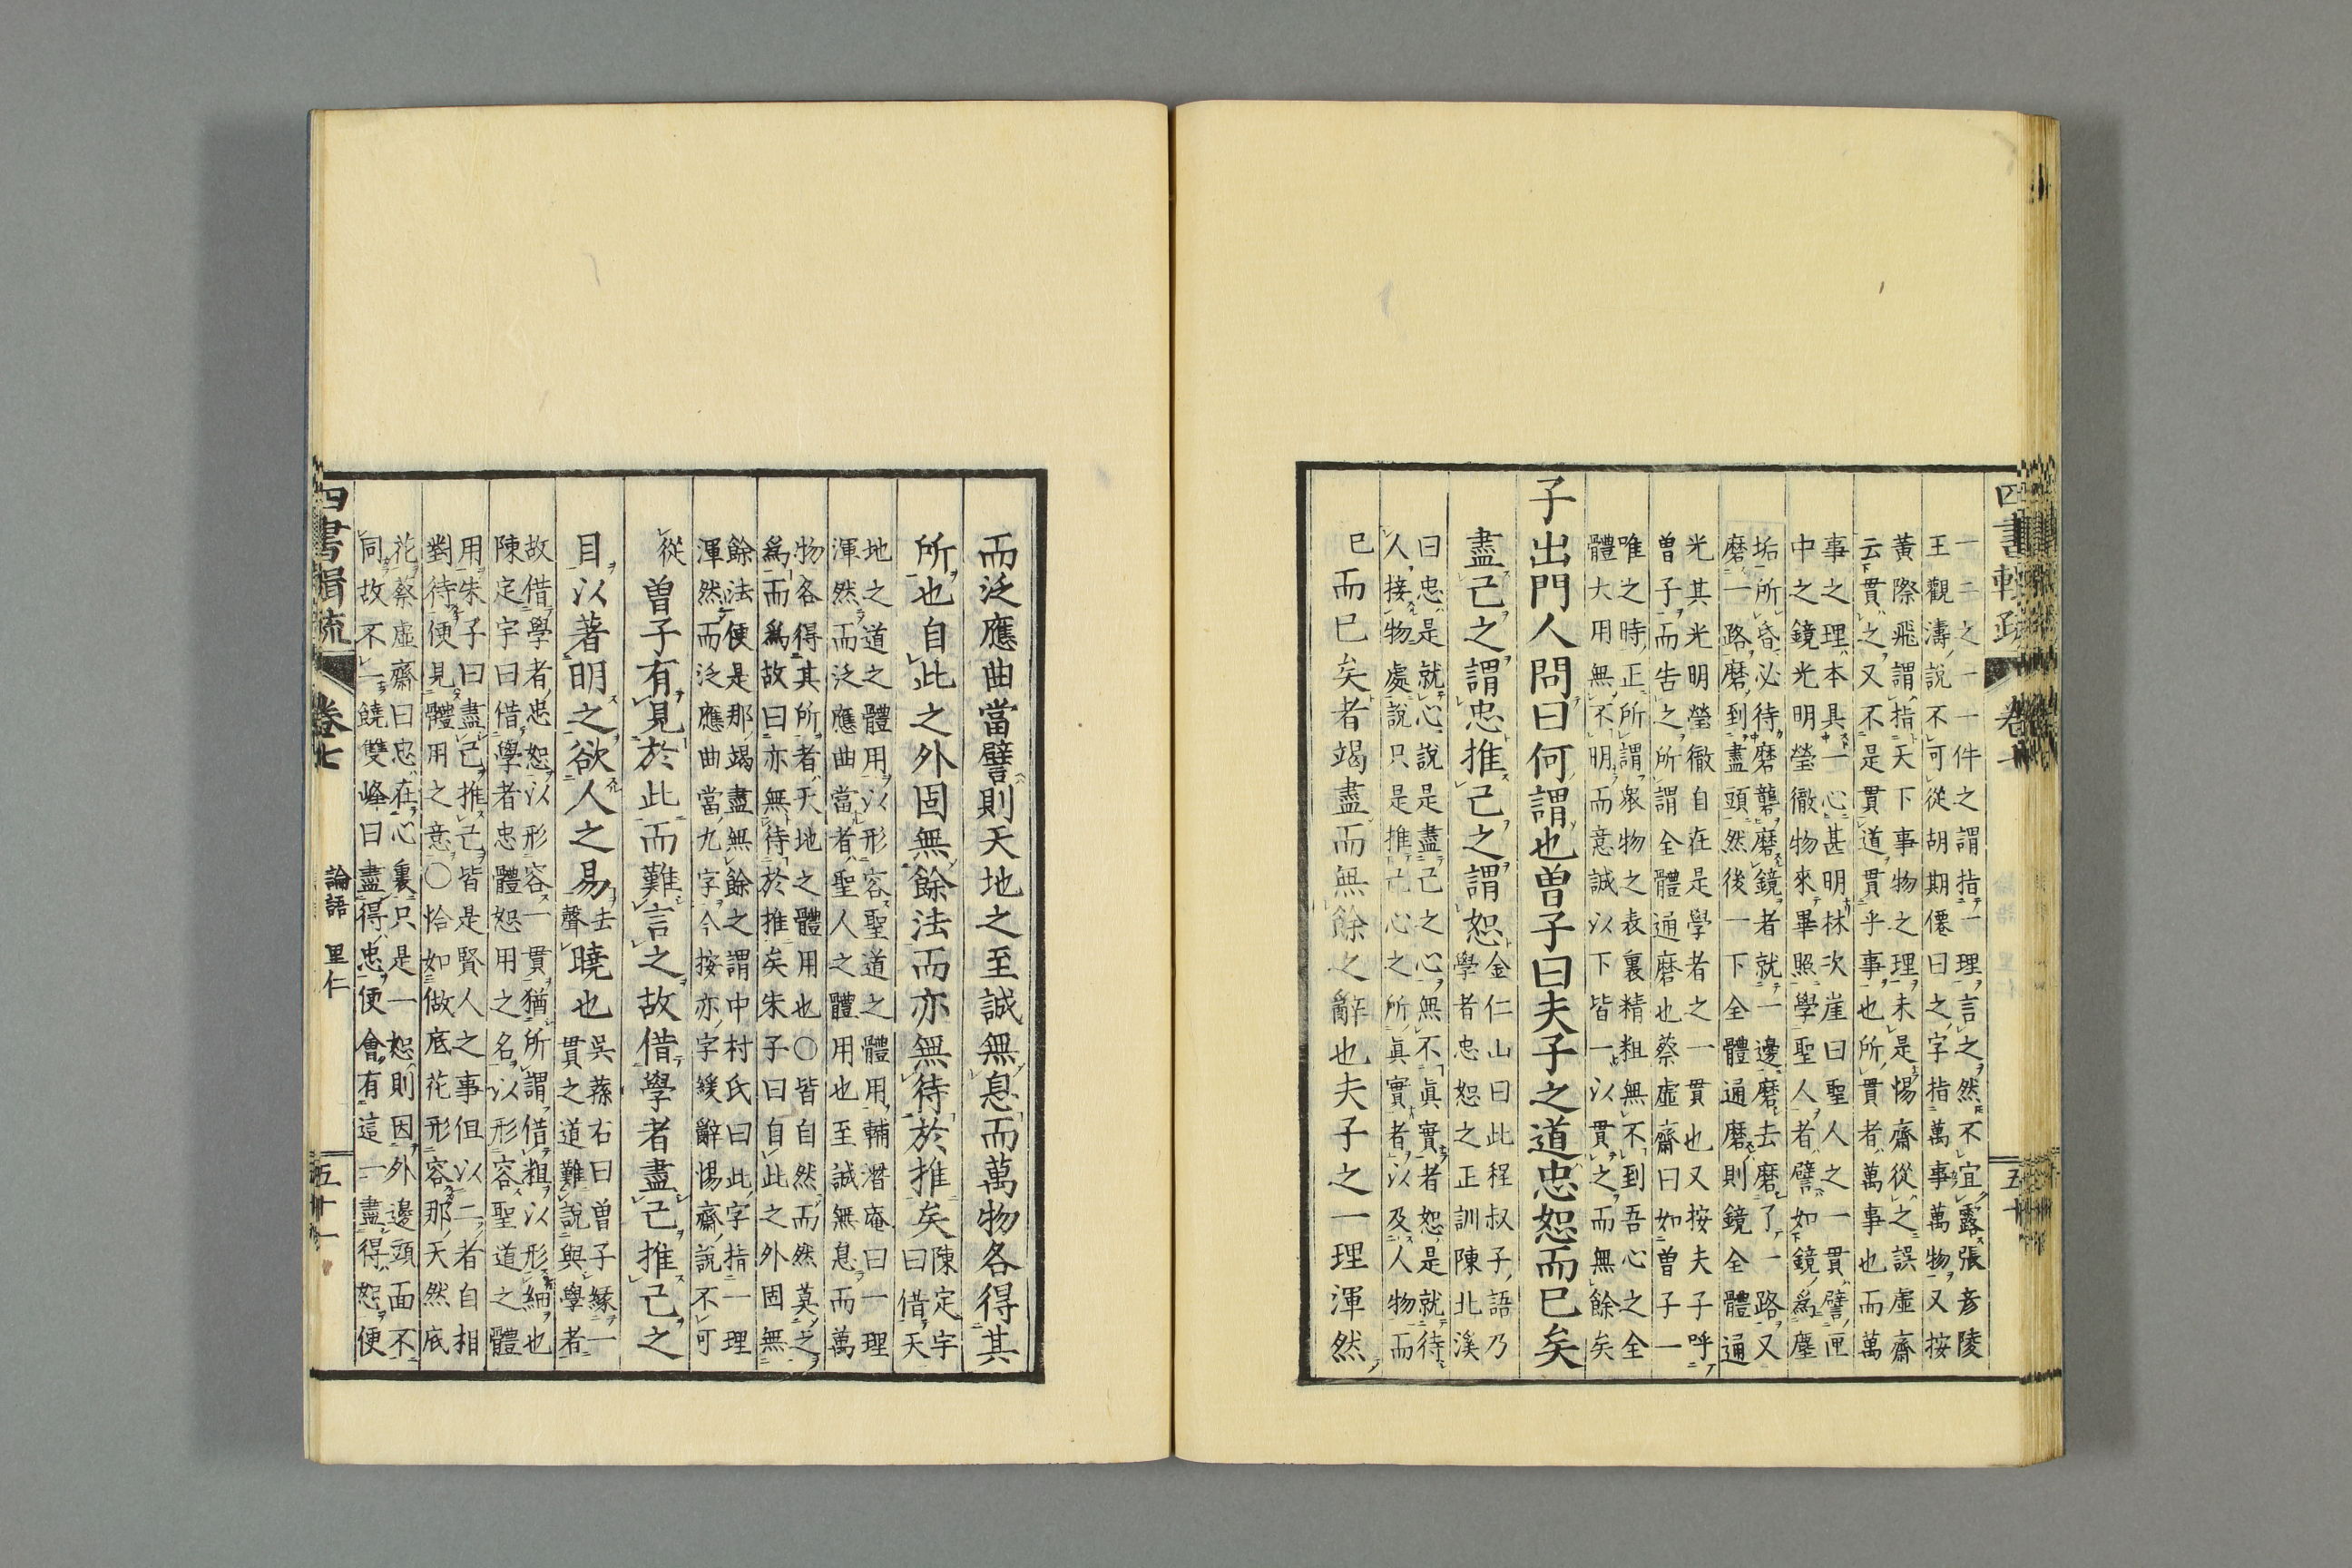 四書輯疏
卷七
五十
一二之一一件之謂指一理言之然不宜露張彦陵
王觀濤說不可從胡期僊曰之字指萬事萬物又按
黃際飛謂指天下事物之理未是惕齋從之誤虛齋
云貫之又不是貫道貫乎事也所貫者萬事也而萬
事之理本具一心甚明林次崖曰聖人之一貫譬匣
中之鏡光明瑩徹物來畢照學聖人者譬如鏡爲塵
垢所昏必待磨礱磨鏡者就一邊磨去磨了一路又
磨一路磨到盡頭然後一下全體通磨則鏡全體通
光其光明瑩徹自在是學者之一貫也又按夫子呼
曾子而告之所謂全體通磨也蔡虛齋曰如曾子一
唯之時正所謂衆物之表裏精粗無不到吾心之全
體大用無不明而意誠以下皆一以貫之而無餘矣
子出門人問曰何謂也曾子曰夫子之道忠恕而已矣
盡己之謂忠推己之謂恕
金仁山曰此程叔子語乃
學者忠恕之正訓陳北溪
曰忠是就心說是盡己之心無不眞實者恕是就待
人接物處說只是推己心之所眞實者以及人物而
已而已矣者竭盡而無餘之辭也夫子之一理渾然
而泛應曲當譬則天地之至誠無息而萬物各得其
所也自此之外固無餘法而亦無待於推矣
陳定宇
曰借天
地之道之體用以形容聖道之體用輔潛庵曰一理
渾然而泛應曲當者聖人之體用也至誠無息而萬
物各得其所者天地之體用也○皆自然而然莫之
爲而爲故曰亦無待於推矣朱子曰自此之外固無
餘法便是那竭盡無餘之謂中村氏曰此字指一理
渾然而泛應曲當九字今按亦字緩辭惕齋說不可
從
曾子有見於此而難言之故借學者盡己推己之
目以著明之欲人之易
去
聲
曉也
吳蓀右曰曾子緣一
貫之道難說與學者
故借學者忠恕以形容一貫猶所謂借粗以形細也
陳定宇曰借學者忠體恕用之名以形容聖道之體
用朱子曰盡己推己皆是賢人之事但以二者自相
對待便見體用之意○恰如做底花形容那天然底
花蔡虛齋曰忠在心裏只是一恕則因外邊頭面不
同故不一饒雙峰曰盡得忠便會有這一盡得恕便
四書輯疏
卷七
論語 里仁
五十一